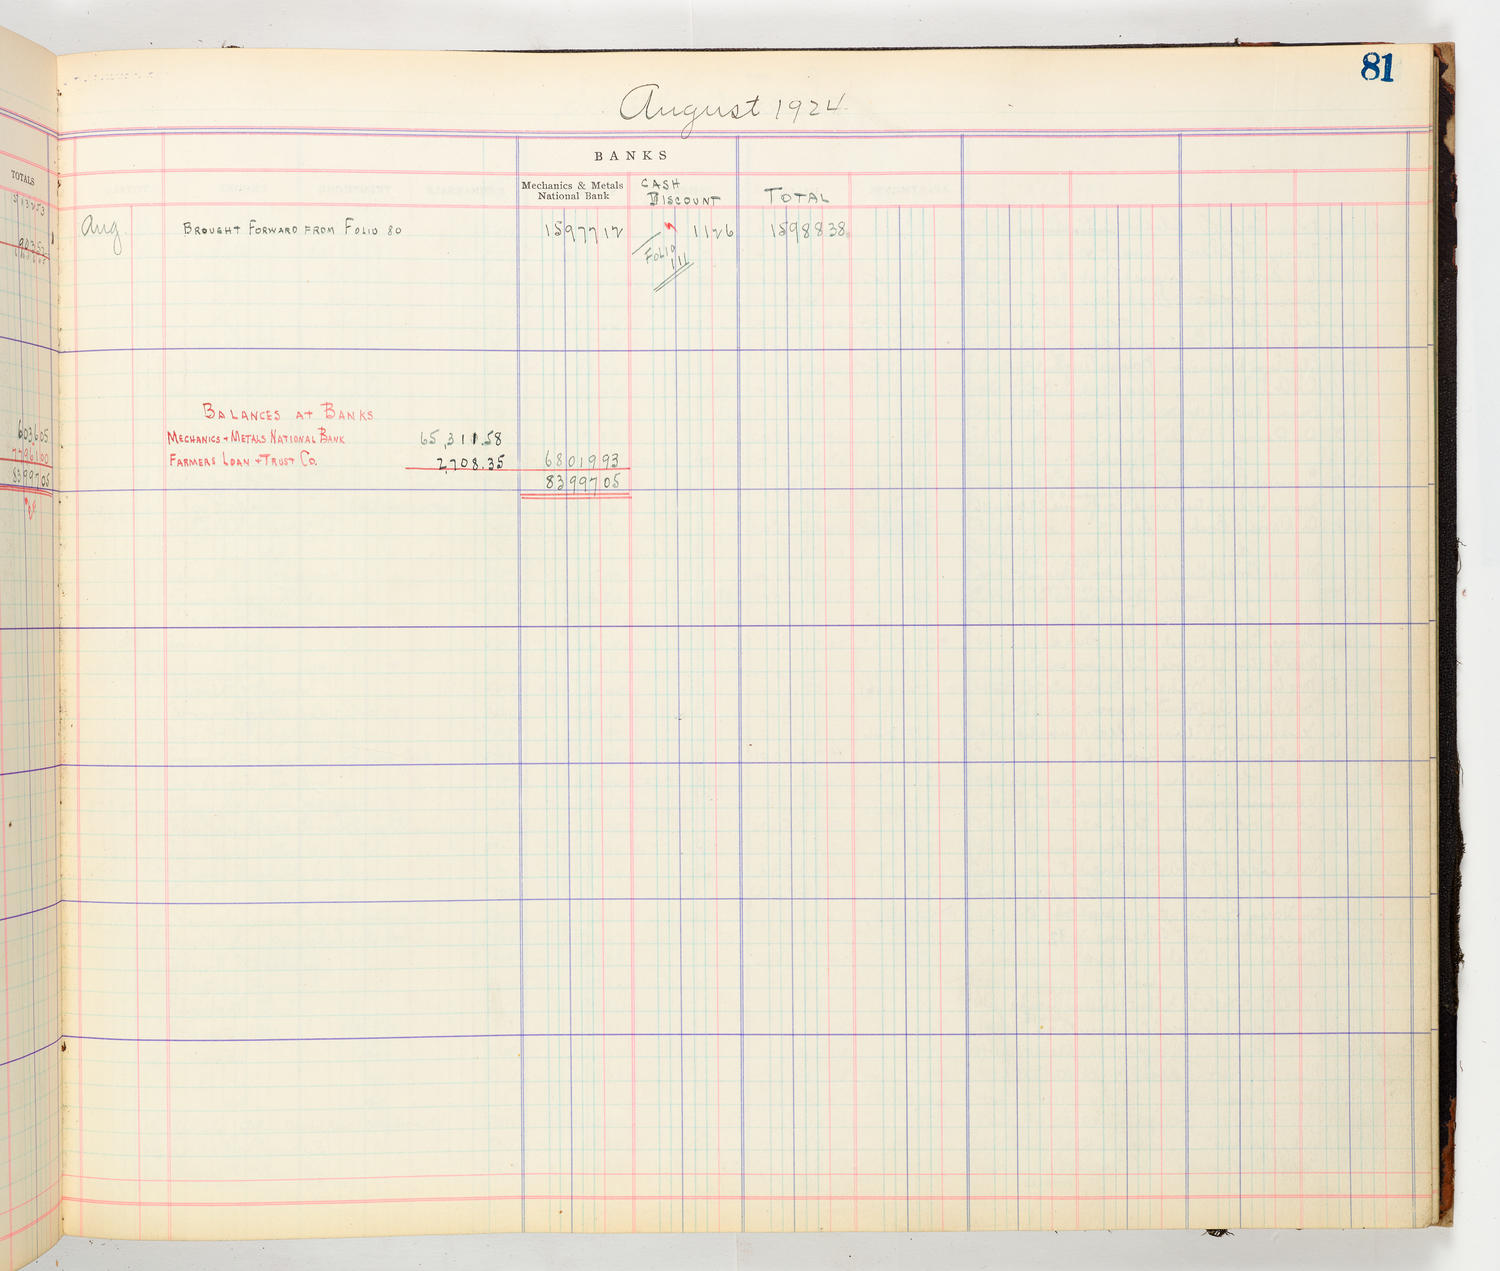 81
August 1924
TOTALS
BANKS
Mechanics & Metals National Bank
CASH DISCOUNT
TOTAL
Aug.
BROUGHT FORWARD FROM FOLIO 80 1597712 1126 1598838
FOLIO 111
BALANCES AT BANKS
MECHANICS + METALS NATIONAL BANK 65,311.58
FARMERS LOAN + TRUST CO. 2,708.35 6801993
8399705
603605
7796100
8399705